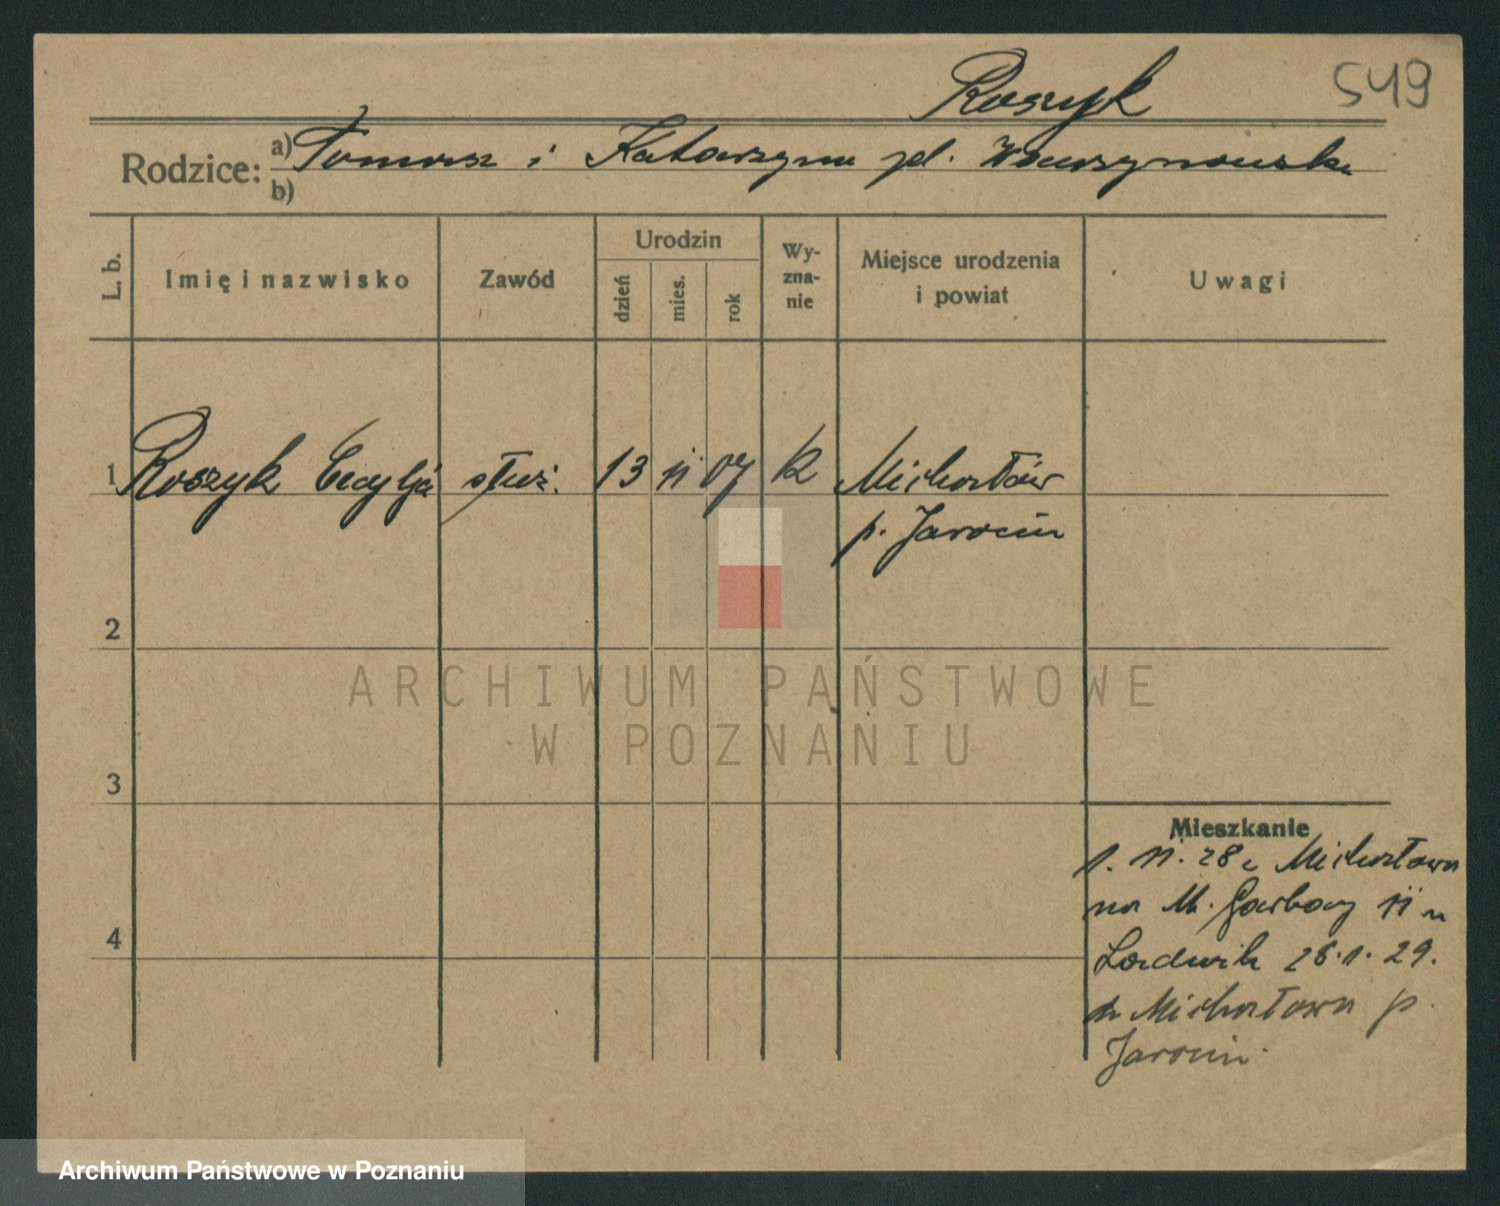 Roszyk
549
Rodzice: a) Tomasz i Katarzyna
b)
L. b.
Imię i nazwisko
Zawód
Urodzin
dzień
mies.
rok
Wy-
zna-
nie
Miejsce urodzenia
i powiat
Uwagi
1 Roszyk Cecylja służ. 13 11 07 k Michałów
p. Jarocin
2
3
4
Mieszkanie
1. 11. 28 z Michałowa
na M. Garbary 11 u
28.1.29.
do Michałowa p.
Jarocin.
ARCHIWUM PAŃSTWOWE
W POZNANIU
Archiwum Państwowe w Poznaniu